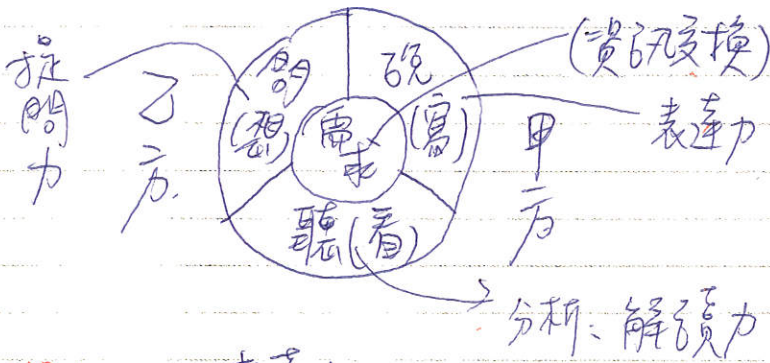 提問力
乙方.
問
(想)
說
(寫)
需求
聽(看)
(資訊交換)
表達力
甲方
分析、解讀力